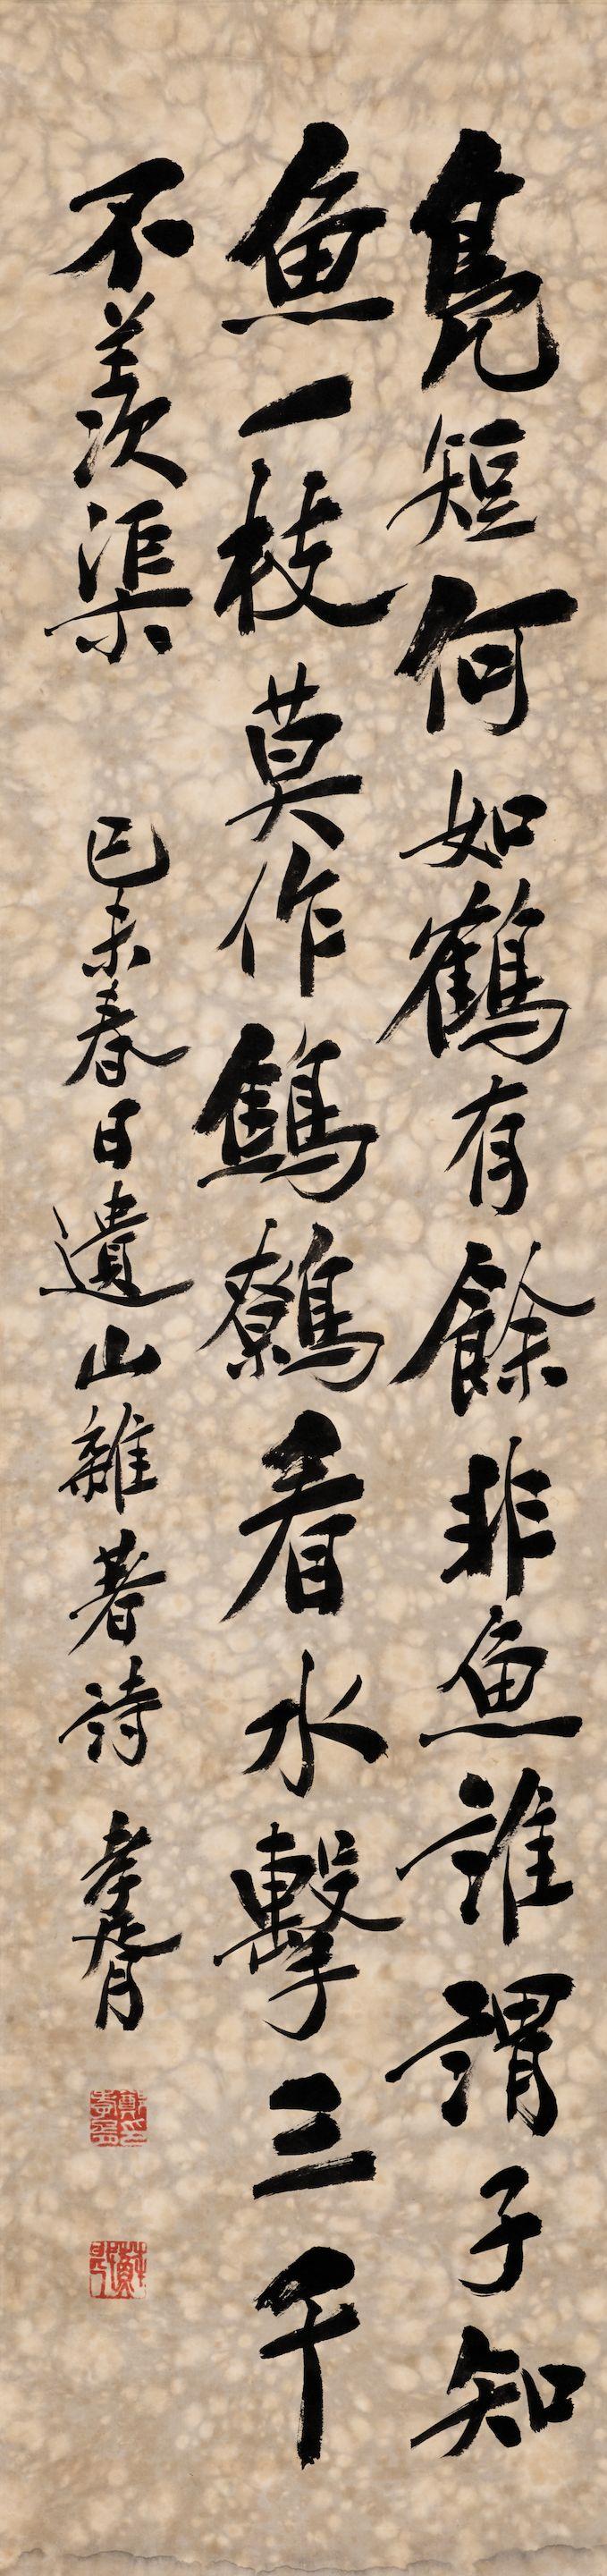 鳧短何如鶴有餘非魚誰謂子知
魚一枝莫作鷦鷯看水擊三千
不羨渠
己未春日遺山雜著詩 孝胥